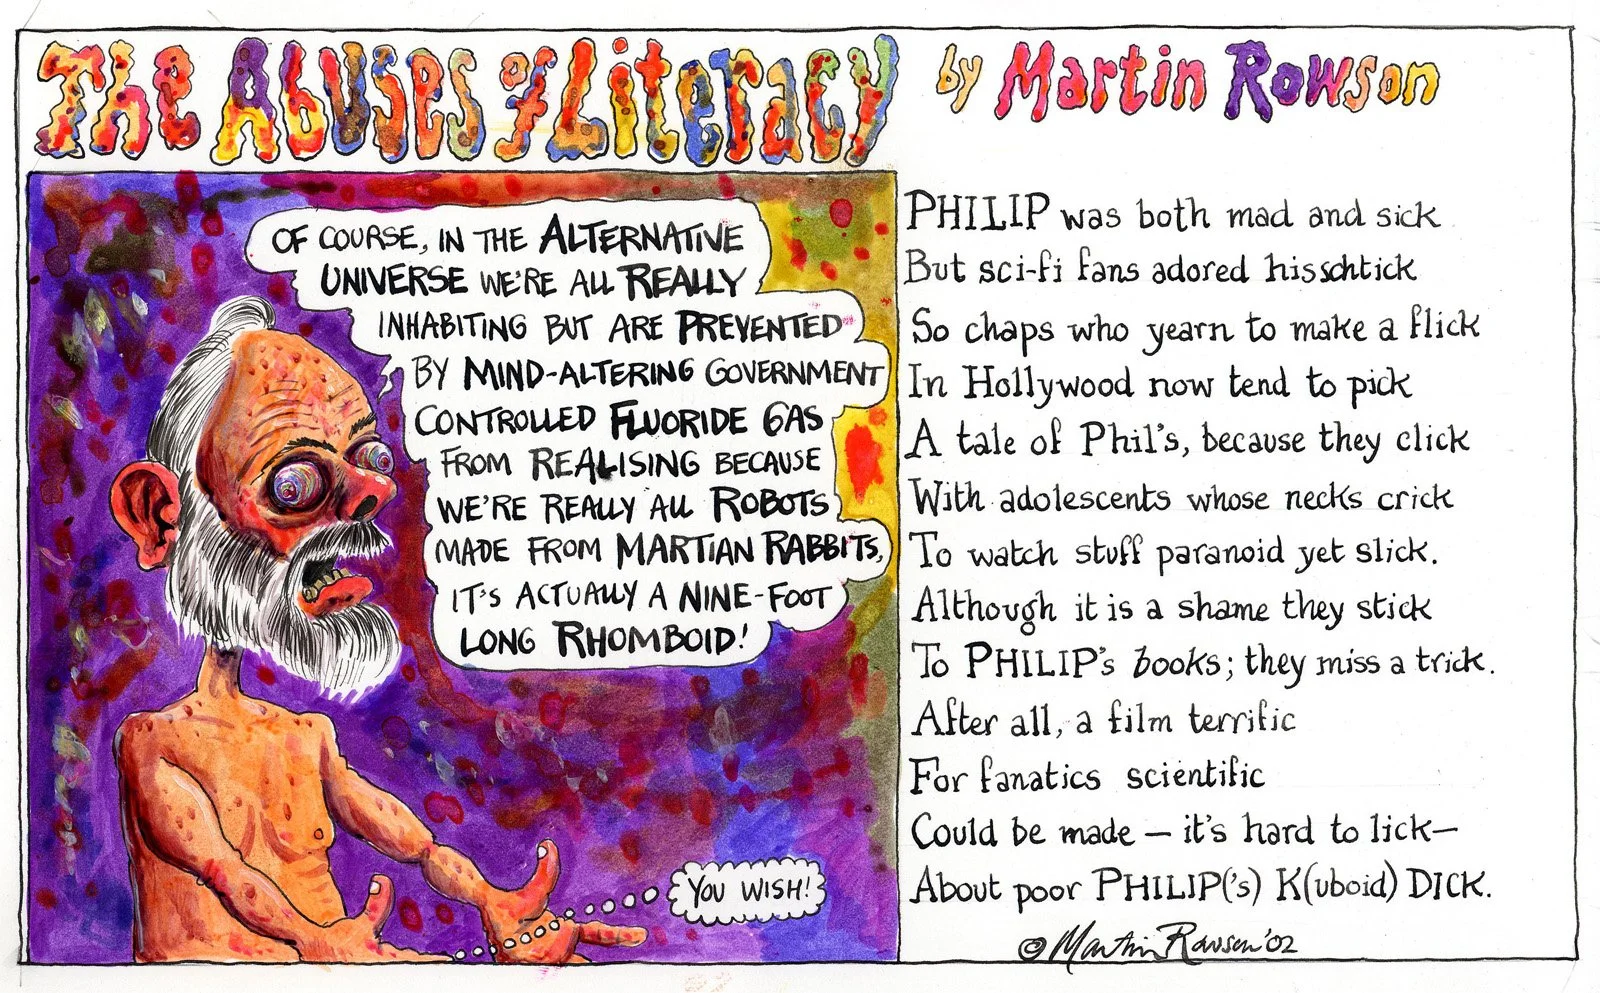 The Abuses of Literacy by Martin Rowson
OF COURSE, IN THE ALTERNATIVE
UNIVERSE WE'RE ALL REALLY
INHABITING BUT ARE PREVENTED
BY MIND-ALTERING GOVERNMENT
CONTROLLED FLUORIDE GAS
FROM REALISING BECAUSE
WE'RE REALLY ALL ROBOTS
MADE FROM MARTIAN RABBITS,
IT'S ACTUALLY A NINE-FOOT
LONG RHOMBOID!
YOU WISH!
PHILIP was both mad and sick
But sci-fi fans adored his schtick
So chaps who yearn to make a flick
In Hollywood now tend to pick
A tale of Phil's, because they click
With adolescents whose necks crick
To watch stuff paranoid yet slick.
Although it is a shame they stick
To PHILIP's books; they miss a trick.
After all, a film terrific
For fanatics scientific
Could be made — it's hard to lick—
About poor PHILIP('s) K(uboid) DICK.
© Martin Rowson '02